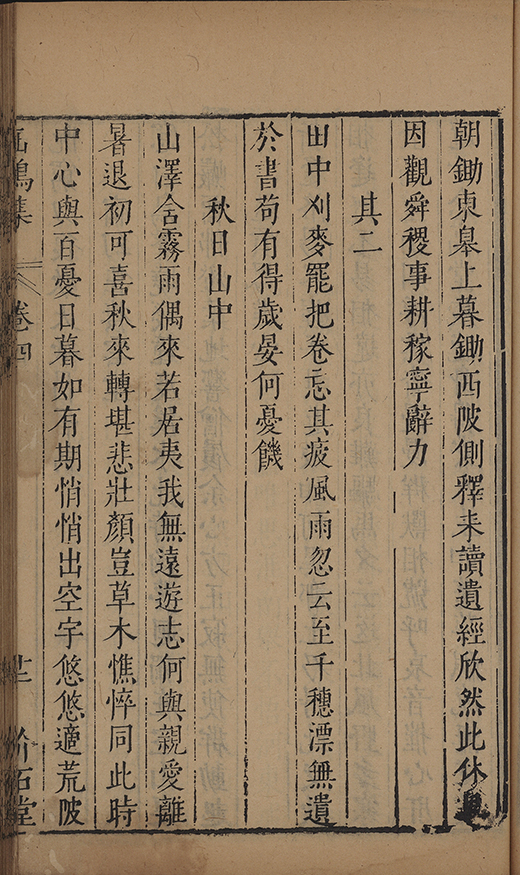 朝鋤東皋上暮鋤西陂側釋耒讀遺經欣然此休
因觀舜稷事耕稼寧辭力
其二
田中刈麥罷把卷忘其疲風雨忽云至千穗漂無遺
於書苟有得歲晏何憂饑
秋日山中
山澤含霧雨偶來若居夷我無遠遊志何與親愛離
暑退初可喜秋來轉堪悲壯顏豈草木憔悴同此時
中心與百憂日暮如有期悄悄出空宇悠悠適荒陂
鳴集 卷四 石堂